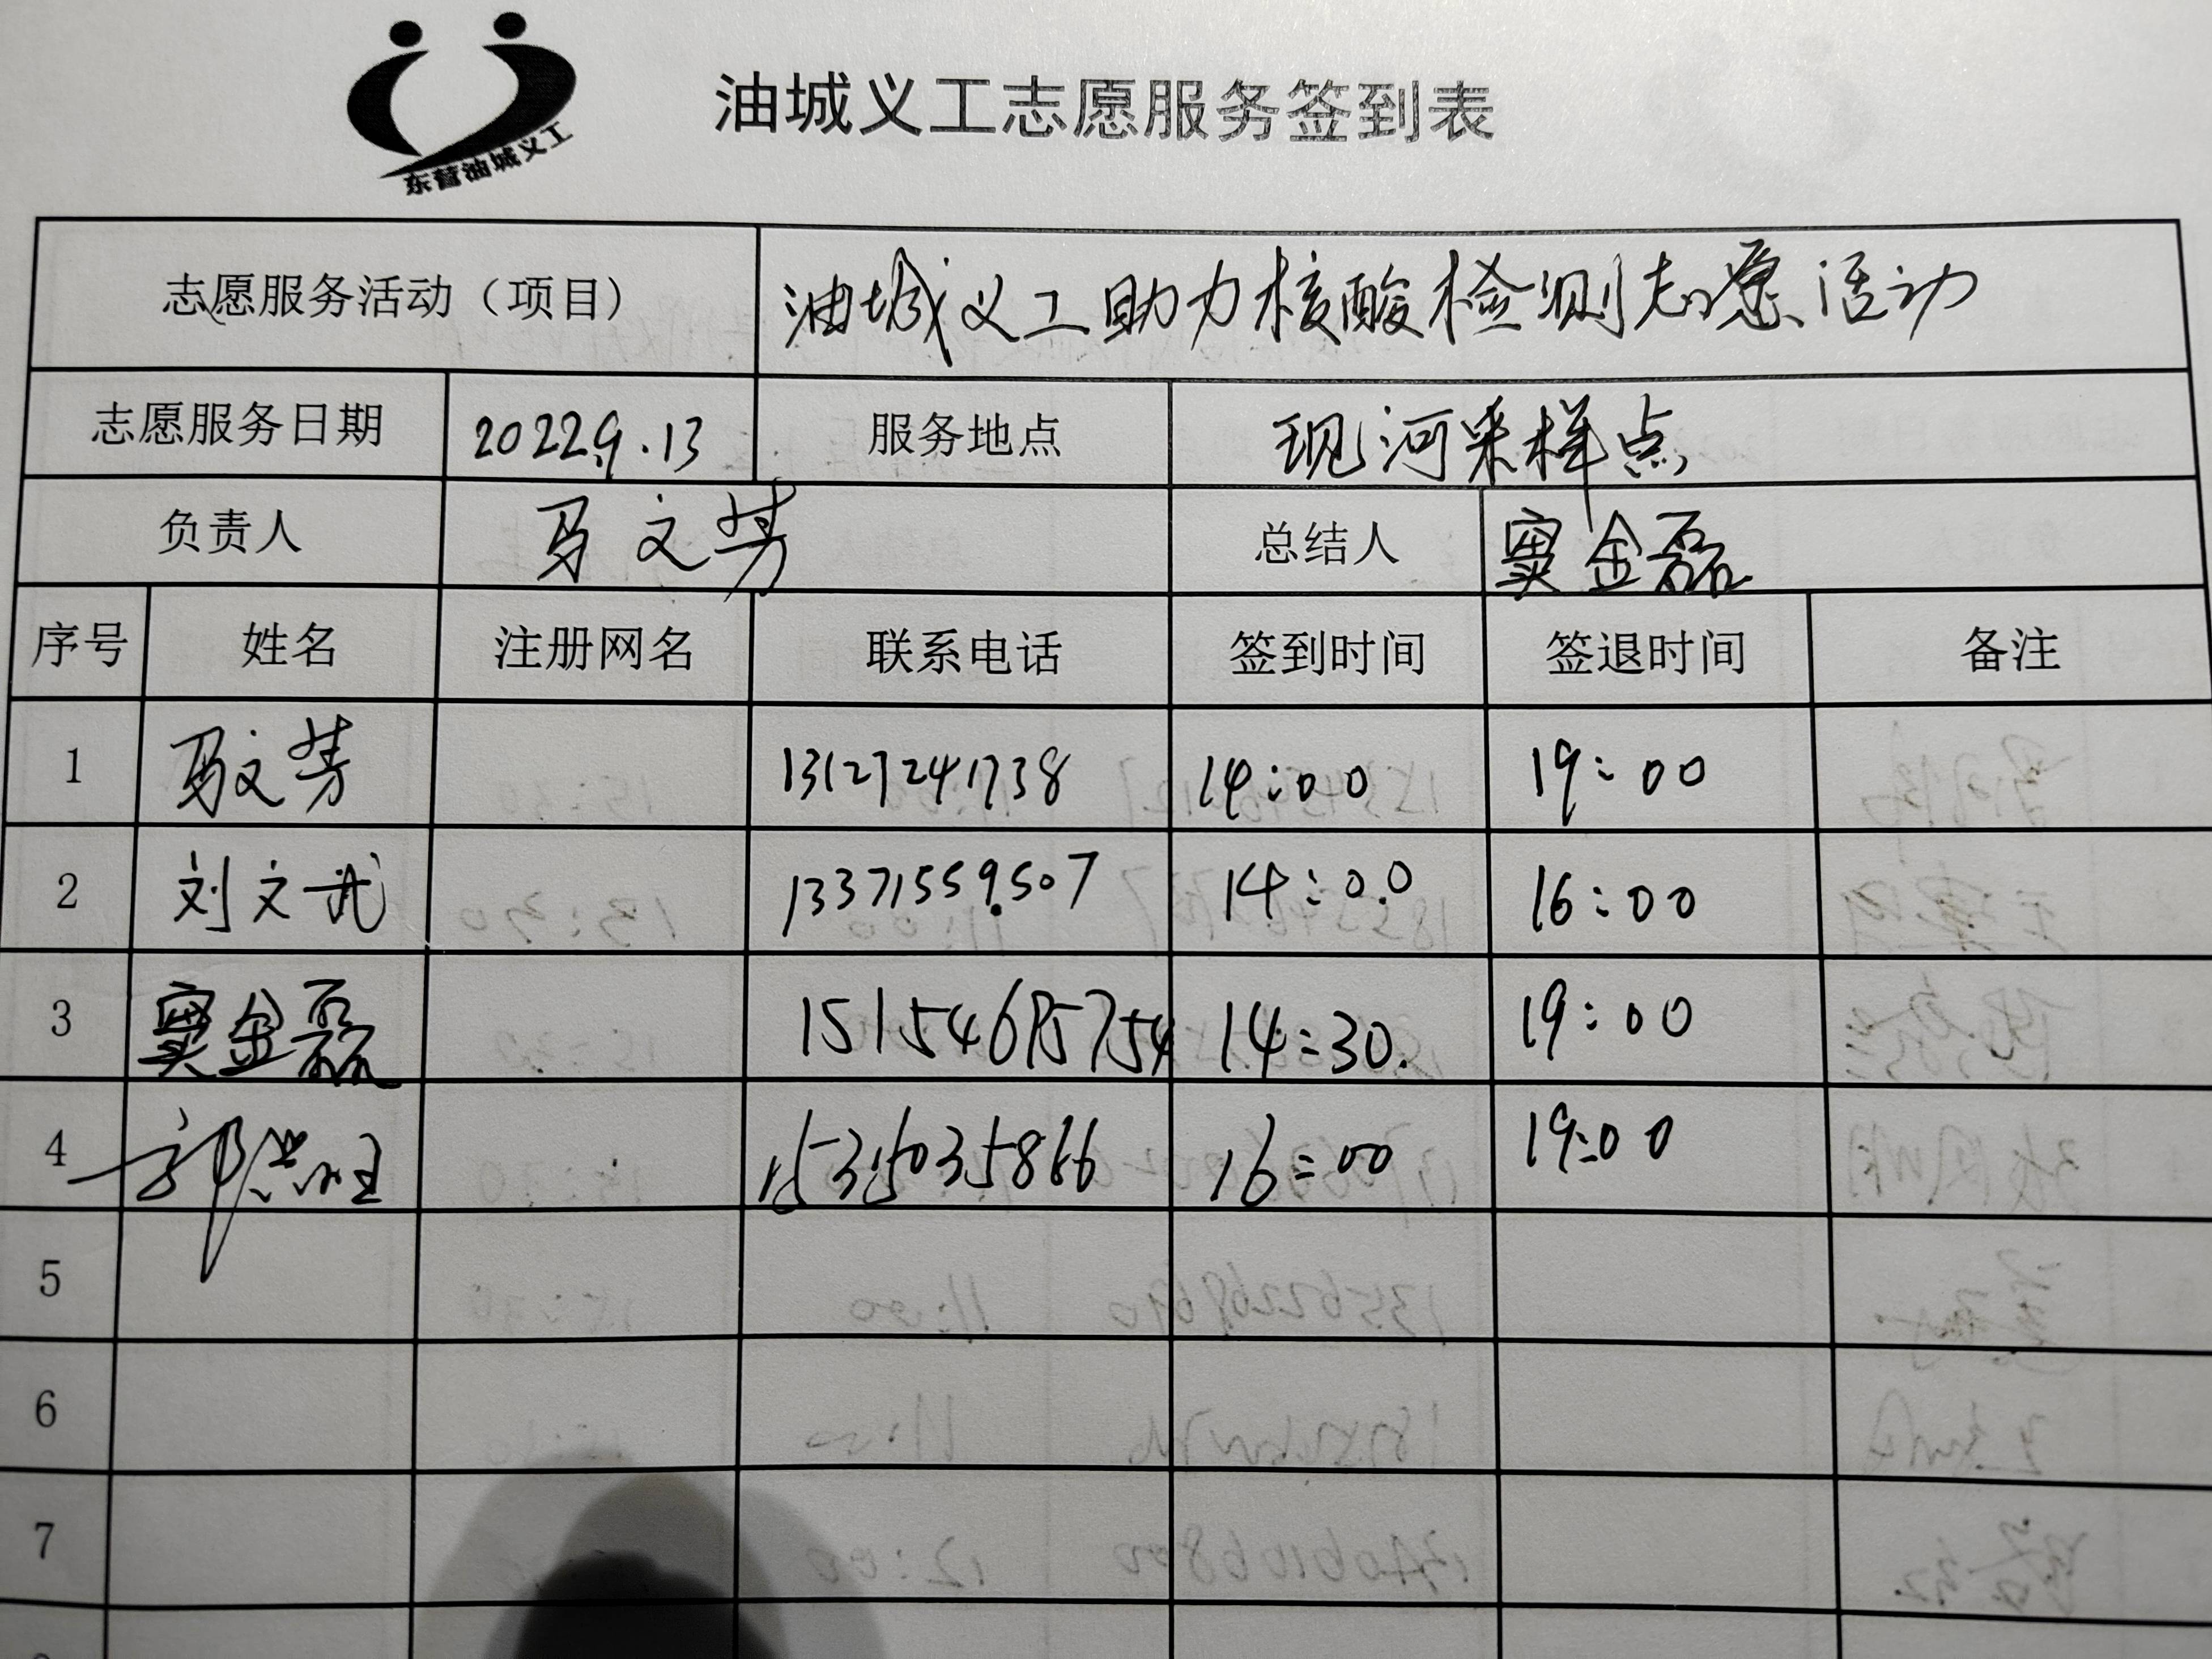 东营油城义工
油城义工志愿服务签到表
志愿服务活动（项目） 油城义工助力核酸检测志愿活动
志愿服务日期 2022.9.13 服务地点 现河采样点
负责人 马文芳 总结人 窦金磊
序号 姓名 注册网名 联系电话 签到时间 签退时间 备注
1 马文芳 13127241738 14:00 19:00
2 刘文武 13371559507 14:00 16:00
3 窦金磊 14:30 19:00
4 郭洪旺 15315035866 16:00 19:00
5
6
7